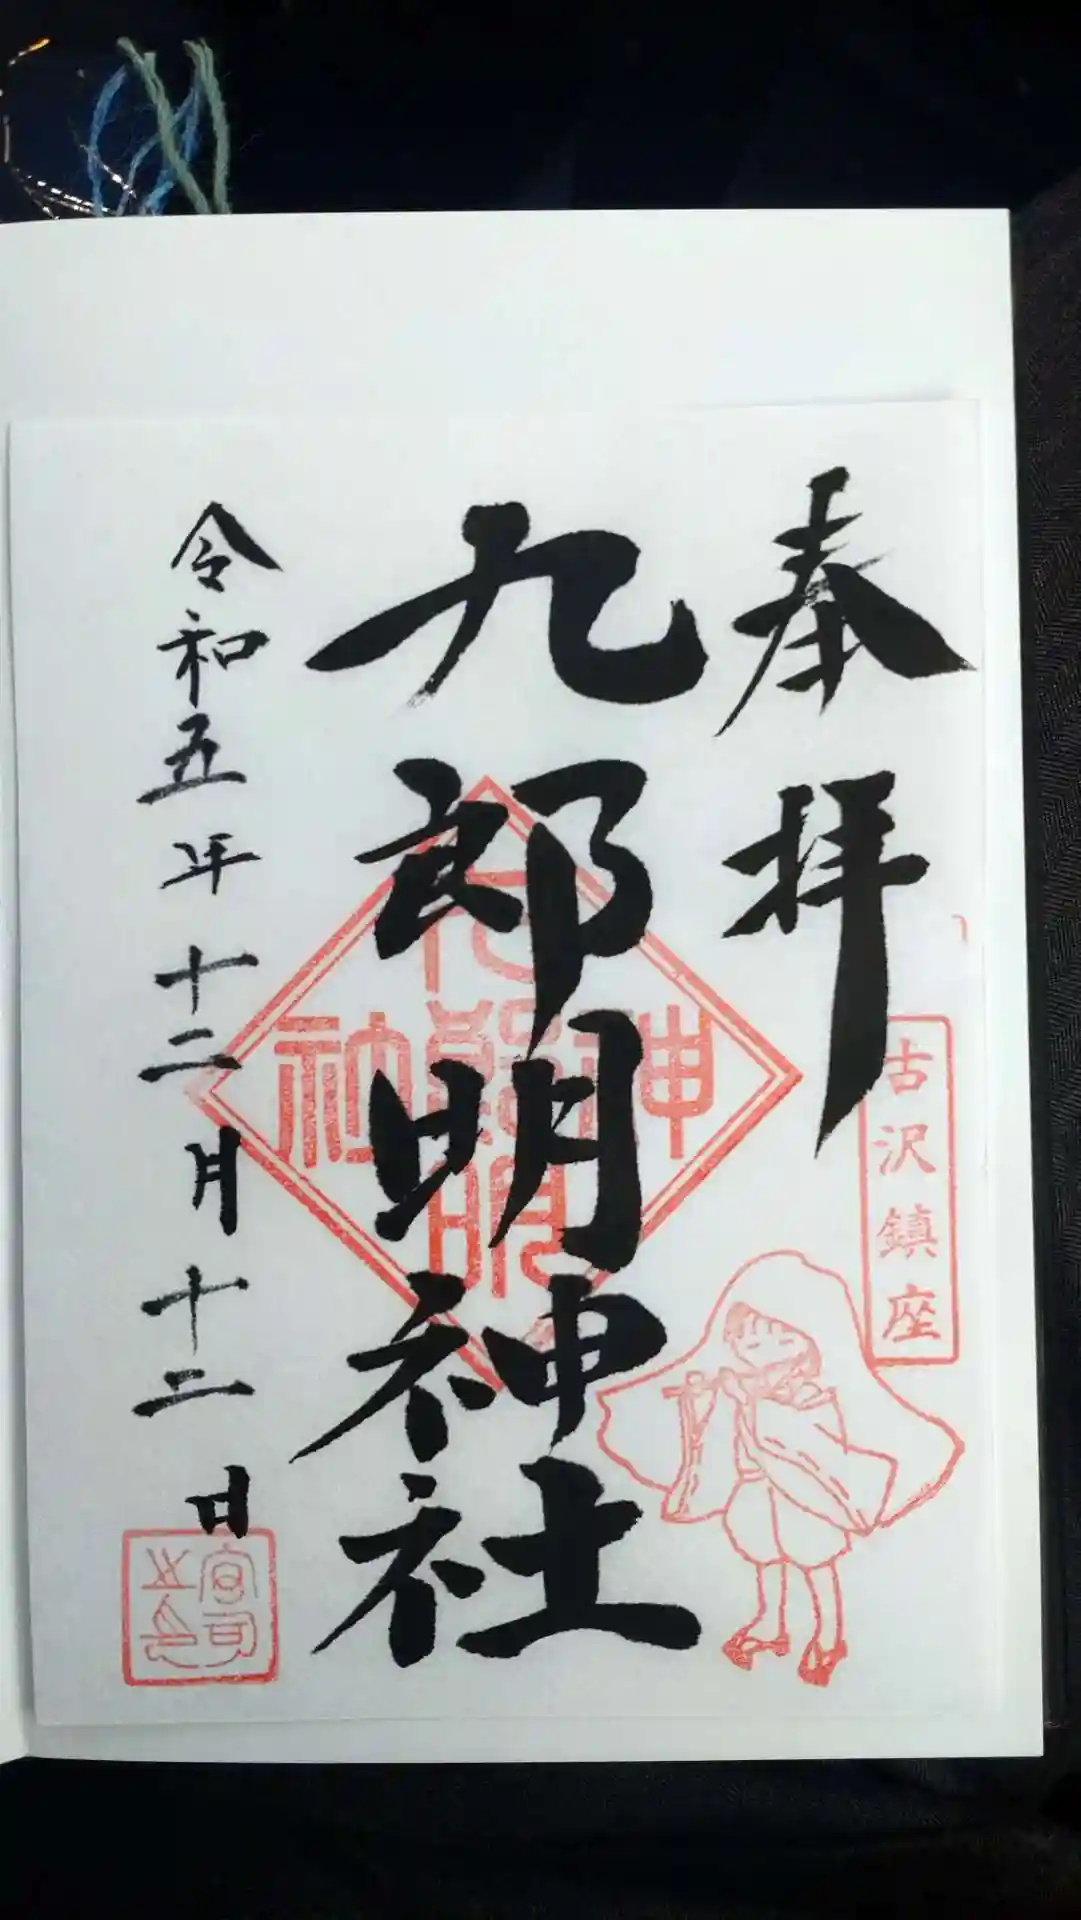 奉拝
古沢鎮座
九郎明神社
九郎明神社
令和五年十二月十二日
宮司之印